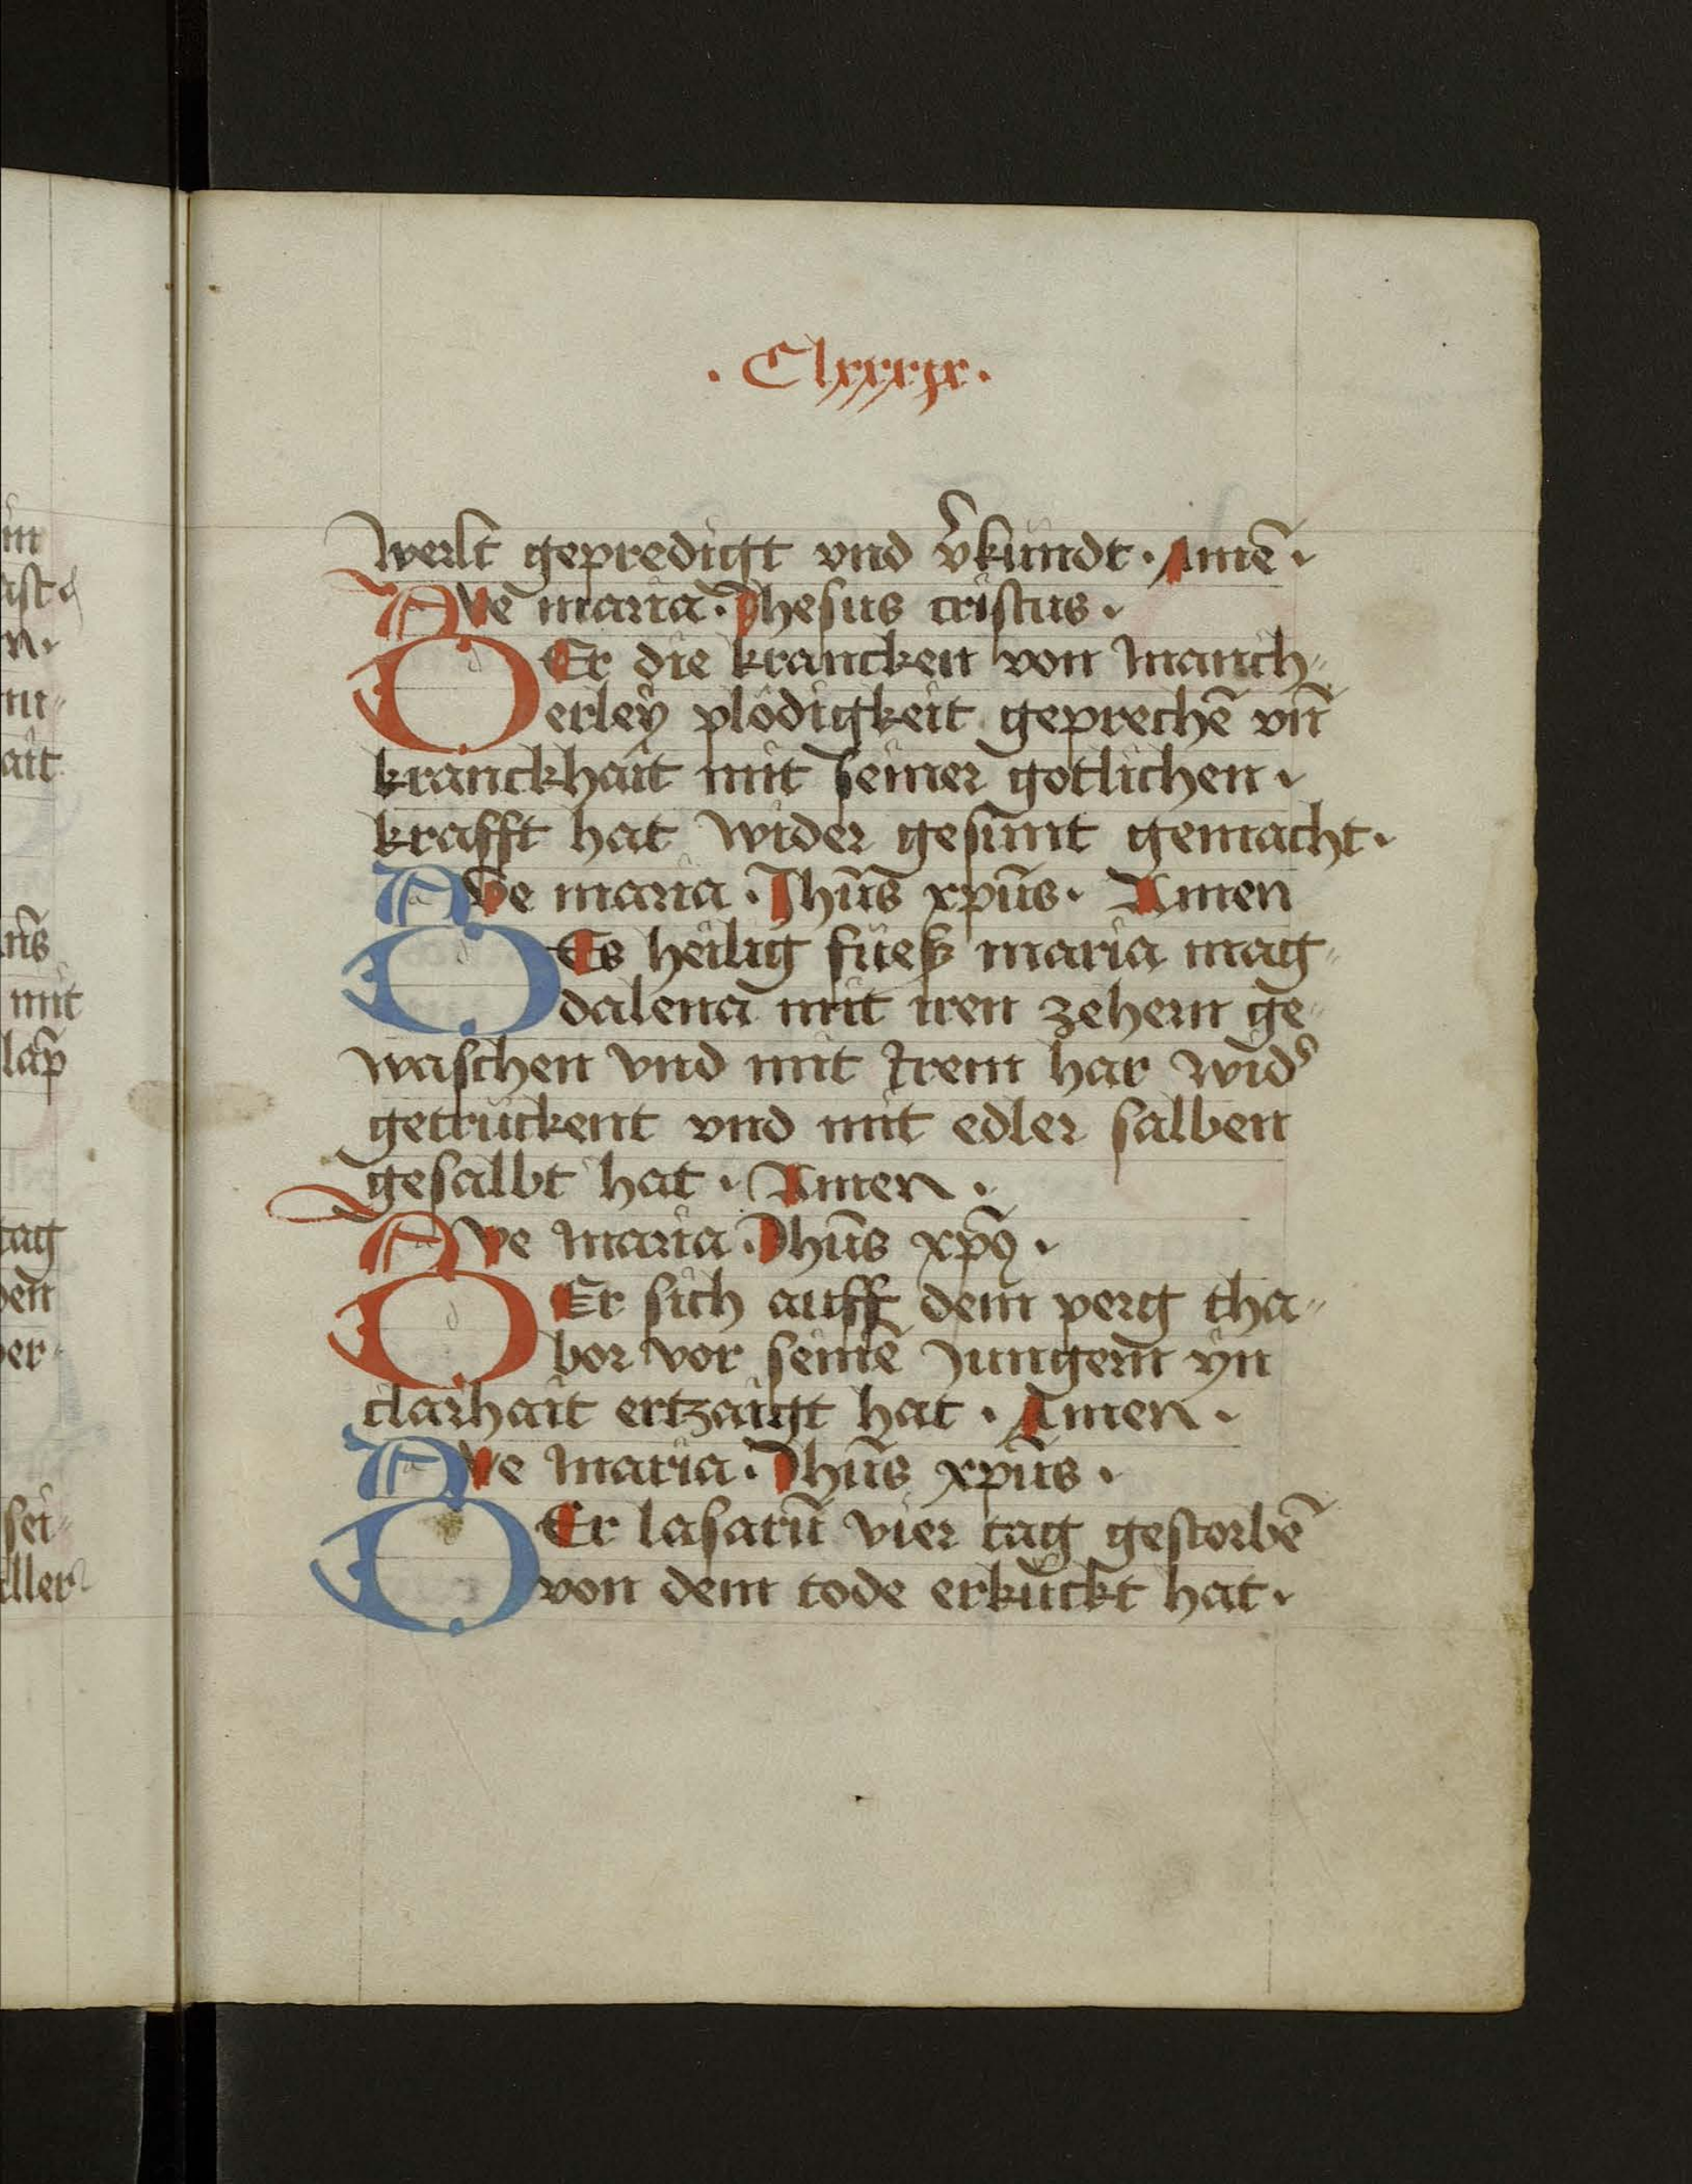 . Clxxxix .
werlt gepredigt vnd v̾kündt · Amē ·
AVe maria · Jhesus cristus ·
DEr die krancken von manich⸗
erley plödigkeit geprechē vn̄
kranckhait mit seiner gotlichen ·
krafft hat wider gesunnt gemacht ·
AVe maria · Jhūs xp̄us · Amen
DEs heilig füeß maria mag⸗
dalena mit iren zehern ge⸗
waschen vnd mit irem har wid̾
getrückent vnd mit edler salben
gesalbt hat · Amen ·
AVe maria · Jhūs xp̄ꝯ ·
DEr sich auff dem perg tha⸗
bor vor seinē Jungern yn
clarhait ertzaigt hat · Amen ·
AVe maria · Jhūs xp̄us ·
DEr lasarū vier tag gestorbē
von dem tode erkückt hat ·